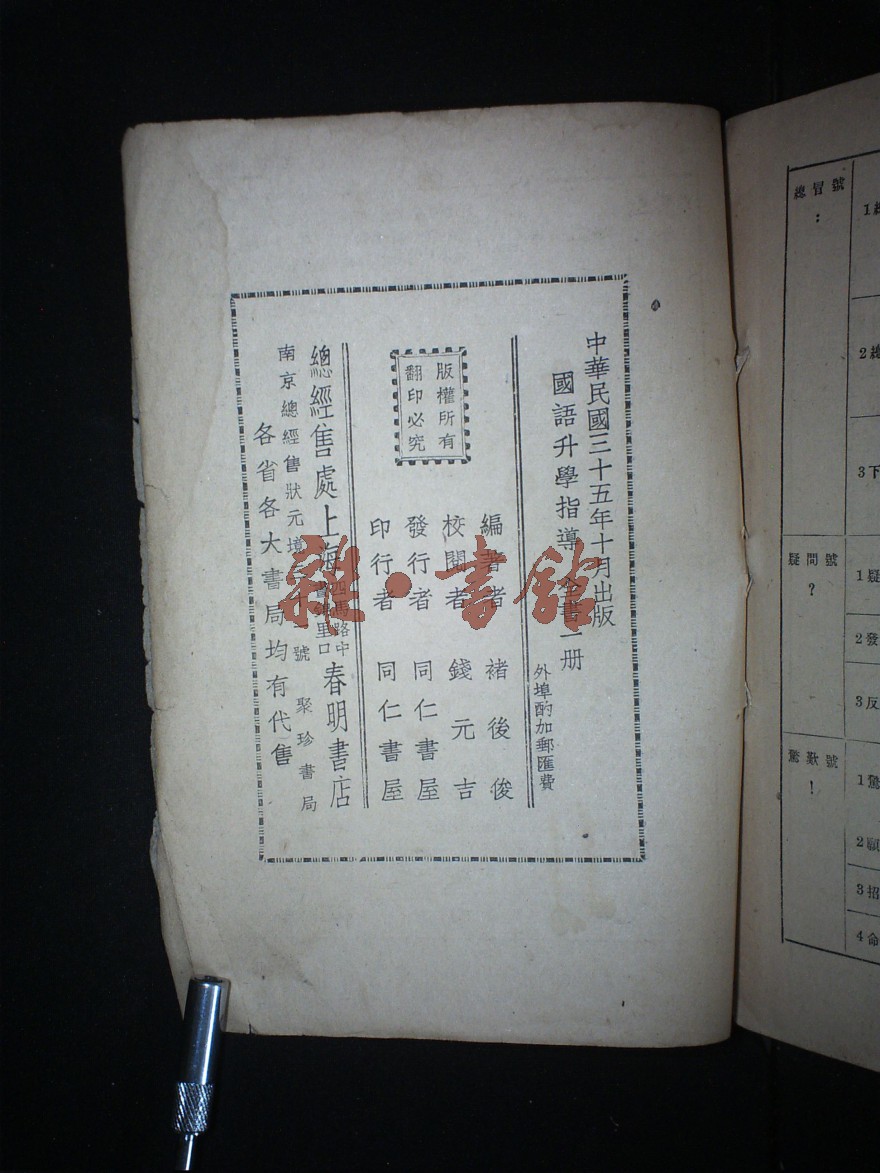 中華民國三十五年十月出版
國語升學指導 全書一册
外埠酌加郵匯費
版權所有
翻印必究
編著者 褚後俊
校閱者 錢元吉
發行者 同仁書屋
印行者 同仁書屋
總經售處上海四馬路中
里口
春明書店
南京總經售狀元境
號 聚珍書局
各省各大書局均有代售
雜·書館
總冒號
:
1總
2總
3下
疑問號
?
1疑
2發
3反
驚歎號
!
1驚
2顧
3招
4命